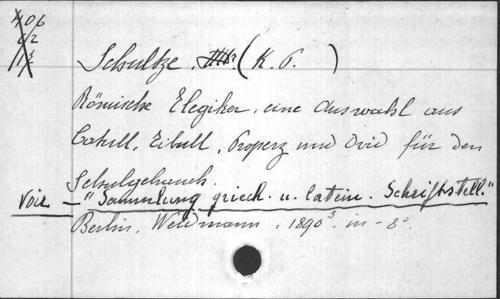 406
62
Schultze, (K. P. )
Römische Elegiker, eine Auswahl aus
Catull, Tibull, Properz und Ovid für den
Schulgebrauch.
Voir – "Sammlung griech. u. latein. Schriftstell."
Berlin, Weidmann, 1890³. in-8°.